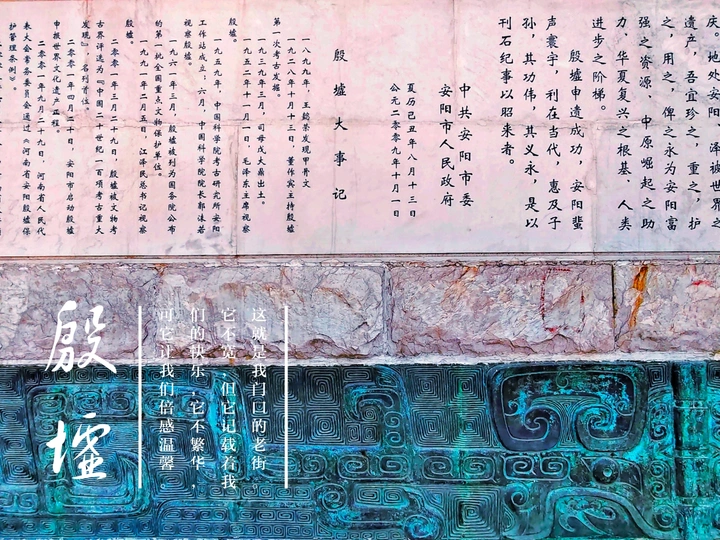 庆。地处安阳，泽被世界之
遗产，吾宜珍之，重之，护
之，用之，俾之永为安阳富
强之资源、中原崛起之助
力、华夏复兴之根基、人类
进步之阶梯。
殷墟申遗成功，安阳蜚
声寰宇，利在当代，惠及子
孙，其功伟，其义永，是以
刊石纪事以昭来者。
中共安阳市委
安阳市人民政府
夏历己丑年八月十三日
公元二〇〇九年十月一日
殷墟大事记
一八九九年，王懿荣发现甲骨文
一九二八年十月十三日，董作宾主持殷墟
第一次考古发掘。
一九三九年三月，司母戊大鼎出土。
一九五二年十一月一日，毛泽东主席视察
殷墟。
一九五九年，中国科学院考古研究所安阳
工作站成立；六月，中国科学院院长郭沫若
视察殷墟。
一九六一年三月，殷墟被列为国务院公布
的第一批全国重点文物保护单位。
一九九一年二月五日，江泽民总书记视察
殷墟。
二〇〇一年三月二十九日，殷墟被文物考
古界评选为「中国二十世纪一百项考古重大
发现」，名列首位。
二〇〇一年二月二十日，安阳市启动殷墟
申报世界文化遗产工程。
二〇〇一年九月二十九日，河南省人民代
表大会常务委员会通过《河南省安阳殷墟保
护管理条例》。
这就是我门口的老街。
它不宽，但它记载着我
们的快乐，它不繁华，
可它让我们倍感温馨
殷墟